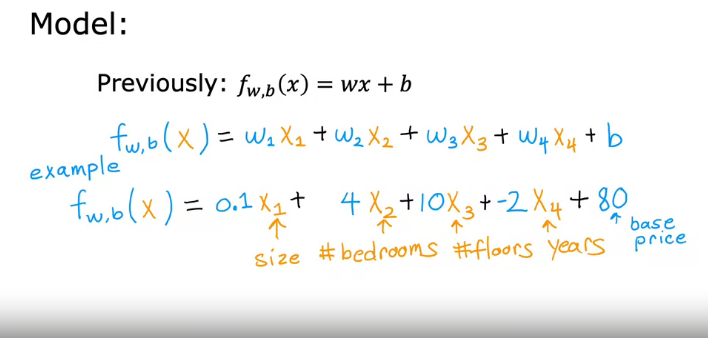 Model:
Previously: f_{w,b}(x) = wx + b
f_{w,b}(x) = w₁X₁ + w₂X₂ + w₃X₃ + w₄X₄ + b
example
f_{w,b}(x) = 0.1X₁ + 4X₂ + 10X₃ + -2X₄ + 80
size #bedrooms #floors years base price